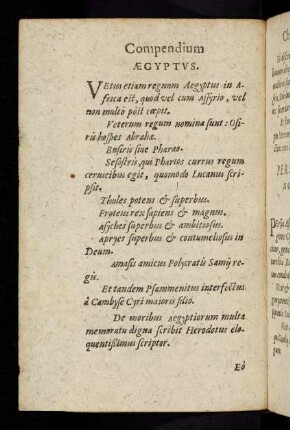 Compendium
ÆGYPTVS.
VEtus etiam regnum Aegyptus in A-
frica est, quod vel cum Assyrio, vel
non multò pòst cœpit.
Veterum regum nomina sunt: Osi-
ris hospes Abrahæ.
Busiris siue Pharao.
Sesostris, qui Pharios currus regum
ceruicibus egit, quomodo Lucanus scri-
psit.
Thules potens & superbus.
Proteus rex sapiens & magnus.
Asyches superbus & ambitiosus.
Apryes superbus & contumeliosus in
Deum.
Amasis amicus Polycratis Samij re-
gis.
Et tandem Psammenitus interfectus
à Cambyse Cyri maioris filio.
De moribus Aegyptiorum multa
memoratu digna scribit Herodotus elo-
quentißimus scriptor.
Eò